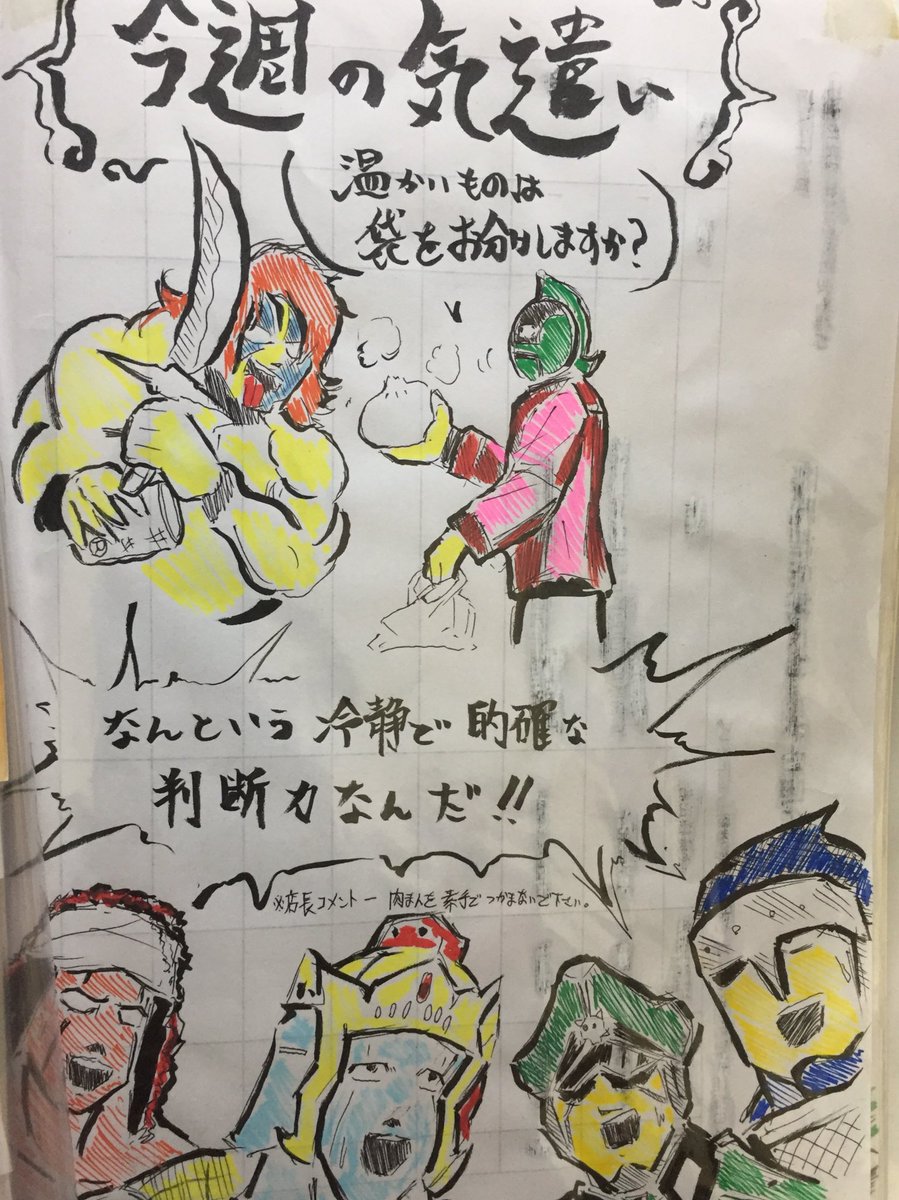 今週の気遣い
温かいものは
袋をお分けしますか?
なんという冷静で的確な
判断力なんだ!!
※店長コメントー 肉まんを素手でつかまないで下さい。